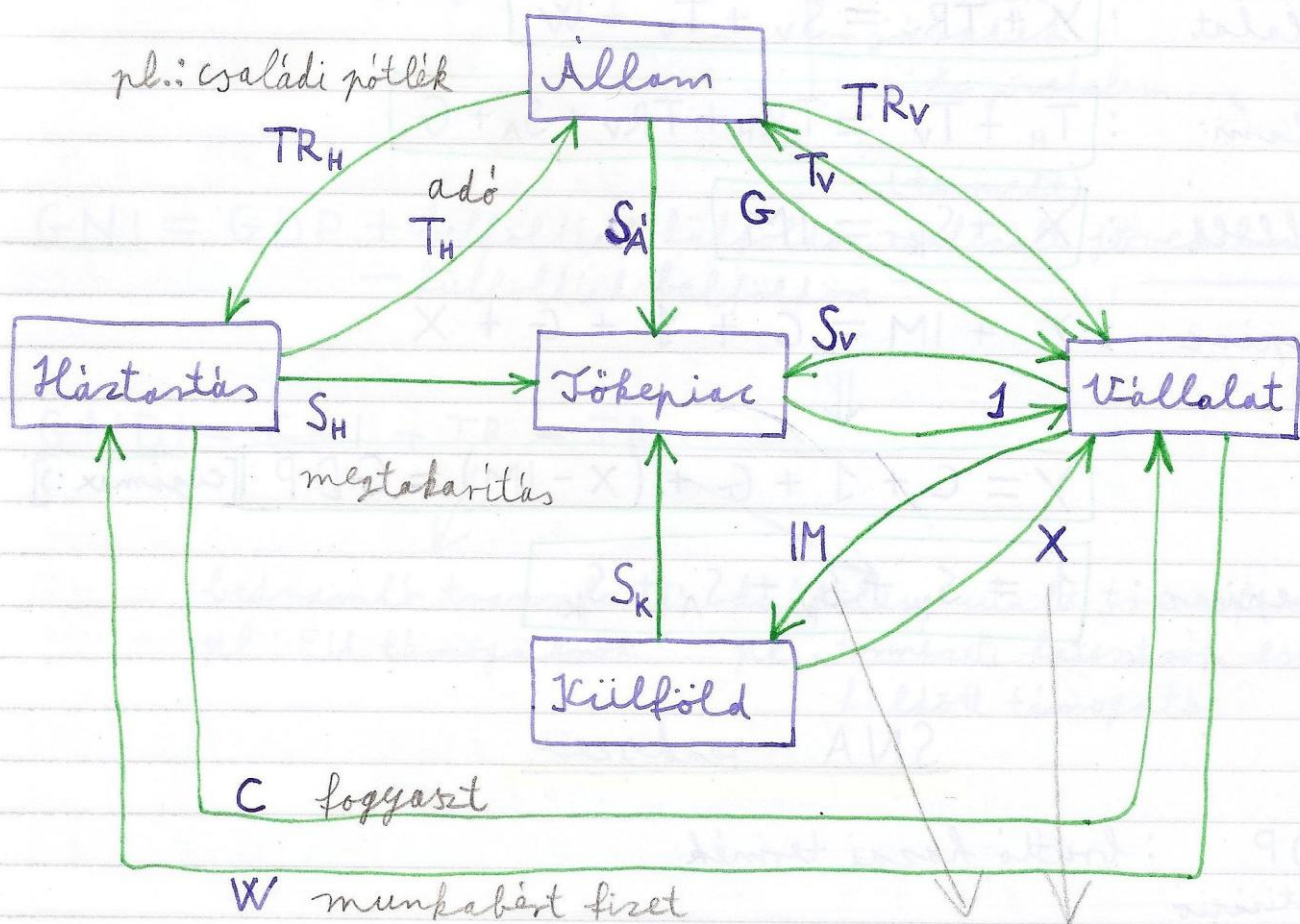 pl.: családi pótlék
Állam
TRH
TRV
adó
TH
SÁ
G
TV
Háztartás
SH
megtakarítás
Tőkepiac
SV
1
Vállalat
SK
IM
X
Külföld
C fogyaszt
W munkabért fizet